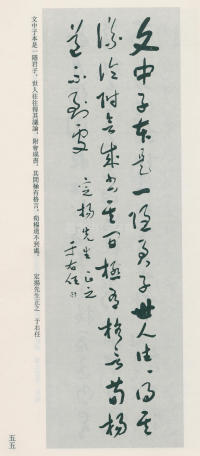 文中子本是一隱君子世人往往得其
議論附會成書其間極有格言荀楊
道不到處
定楊先生正之
于右任
文中子本是一隱君子，世人往往得其議論，附會成書，其間極有格言，荀楊道不到處。　定楊先生正之　于右任
五五